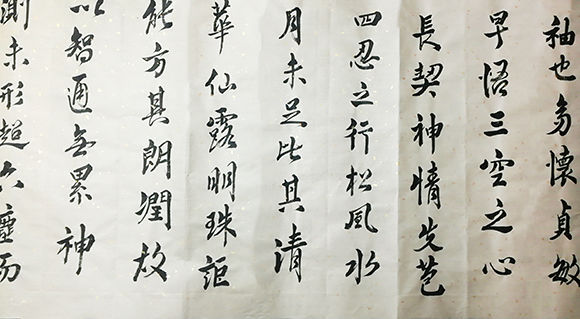 袖也幼懷貞敏
早悟三空之心
長契神情先苞
四忍之行松風水
月未足比其清
華仙露明珠詎
能方其朗潤故
以智通無累神
測未形超六塵而